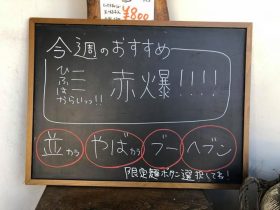 ¥800
今週のおすすめ
赤爆!!!!
からいっ!!
並から やばから ブー ヘブン
限定麺ボタン選択してね!